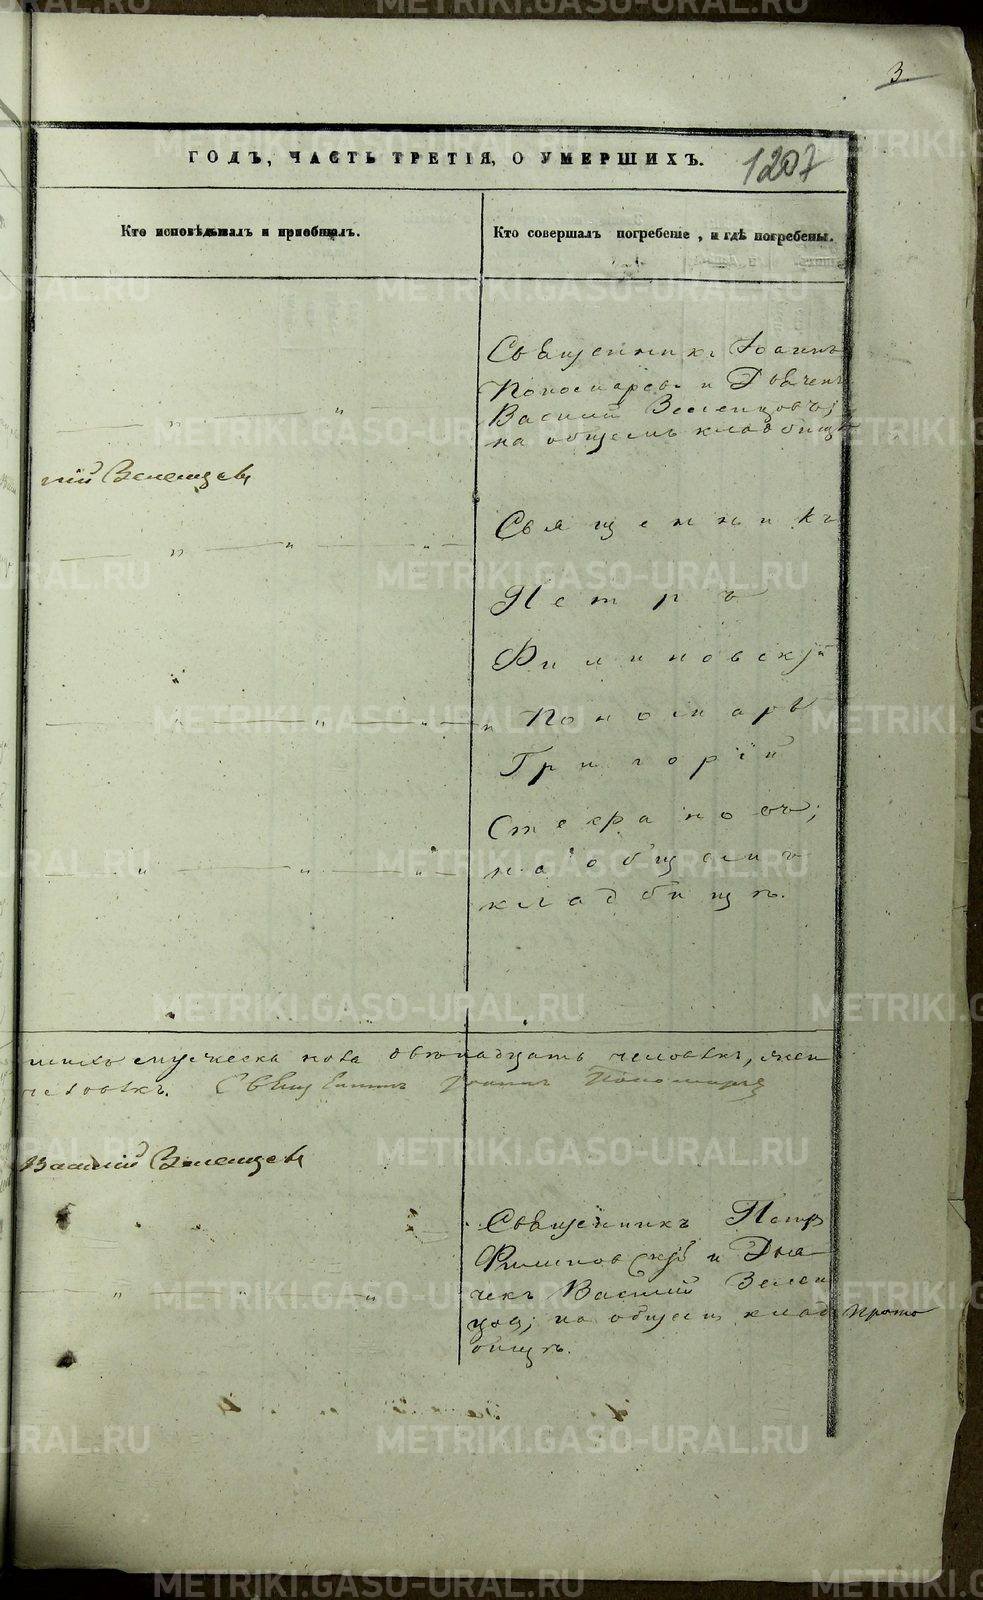 3
ГОДЪ, ЧАСТЬ ТРЕТІЯ, О УМЕРШИХЪ. 1207
Кто исповѣдывалъ и приобщалъ.
Кто совершалъ погребеніе, и гдѣ погребены.
Священникъ Іоаннъ
Пономаревъ и Дьячекъ
Василій Зеленцовъ;
на общемъ кладбищѣ
лій Зеленцовъ
Священникъ
Петръ
Филиновскій
и Пономарь
Григорій
Стефановъ;
на общемъ
кладбищѣ.
мужеска пола двѣнадцать человѣкъ,
человѣкъ. Священникъ Іоаннъ Пономаревъ
Василій Зеленцовъ
Священникъ Петръ
Филиновскій и Дья
чекъ Василій Зелен
цов; на общем клад
бищѣ.
METRIKI.GASO-URAL.RU